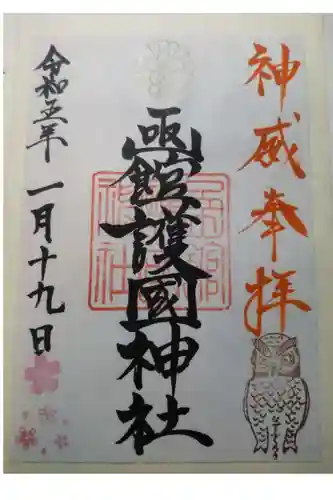 神威奉拝
函館護國神社
令和五年
一月十九日